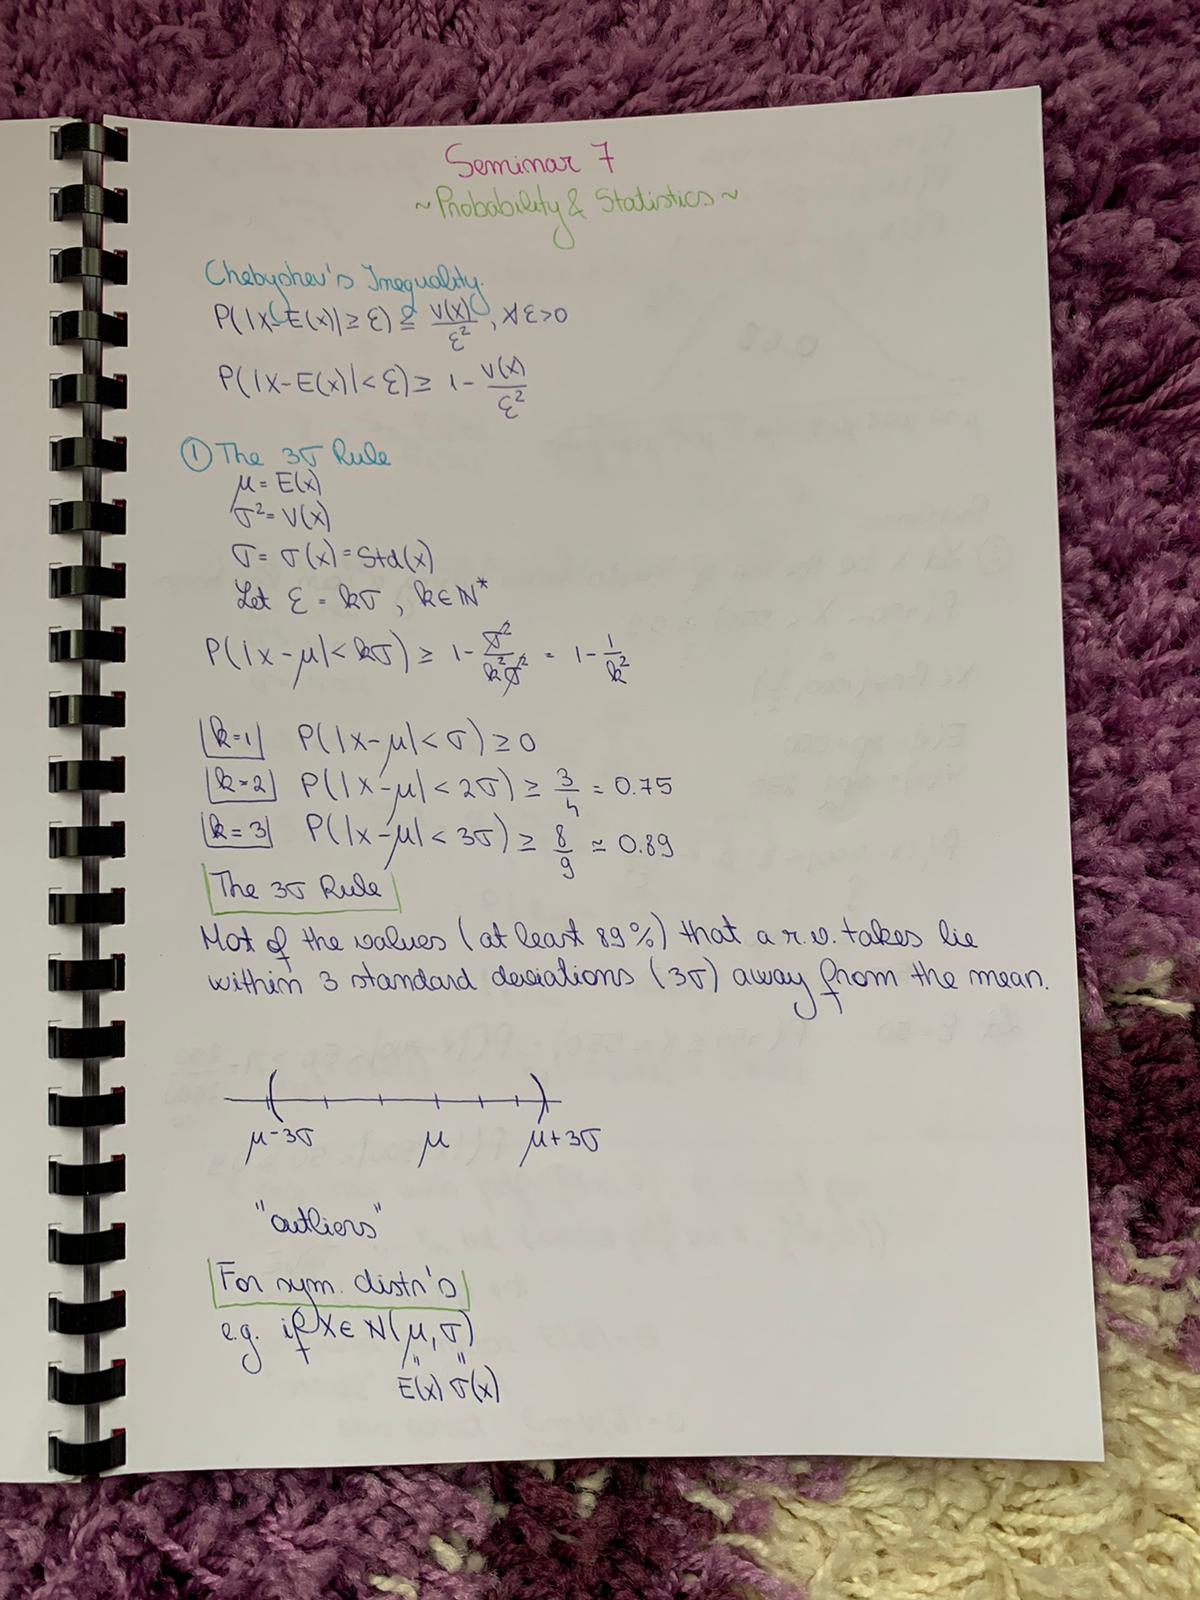 Seminar 7
~Probability & Statistics~
Chebyshev's Inequality
P(|X-E(X)|≥ε) ≤ V(X)/ε², ∀ε>0
P(|X-E(X)|<ε) ≥ 1 - V(X)/ε²
① The 3σ Rule
μ = E(X)
σ² = V(X)
σ = σ(X) = Std(X)
Let ε = kσ, k∈ℕ*
P(|X-μ|<kσ) ≥ 1 - σ²/k²σ² = 1 - 1/k²
k=1 P(|X-μ|<σ) ≥ 0
k=2 P(|X-μ|<2σ) ≥ 3/4 = 0.75
k=3 P(|X-μ|<3σ) ≥ 8/9 ≃ 0.89
The 3σ Rule
Mot of the values (at least 89%) that a r.v. takes lie
within 3 standard deviations (3σ) away from the mean.
μ-3σ μ μ+3σ
"outliers"
For sym. distr's
e.g. if X∈N(μ,σ)
" "
E(X) σ(X)